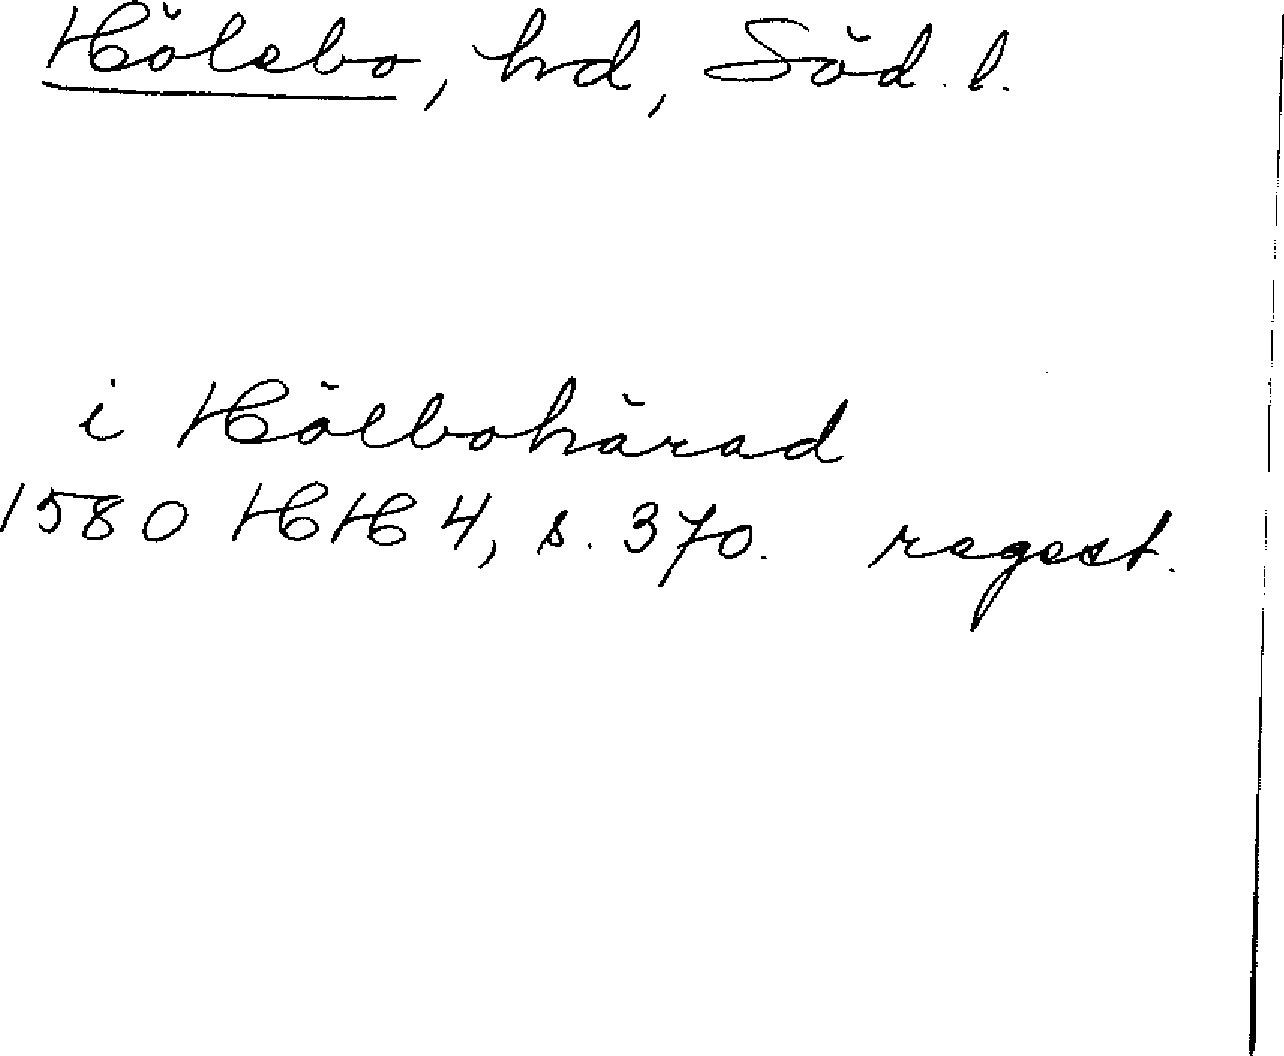 Hölebo, hd, Söd. l.
i Hölbohärad
1580 HH 4, s. 370. regest.